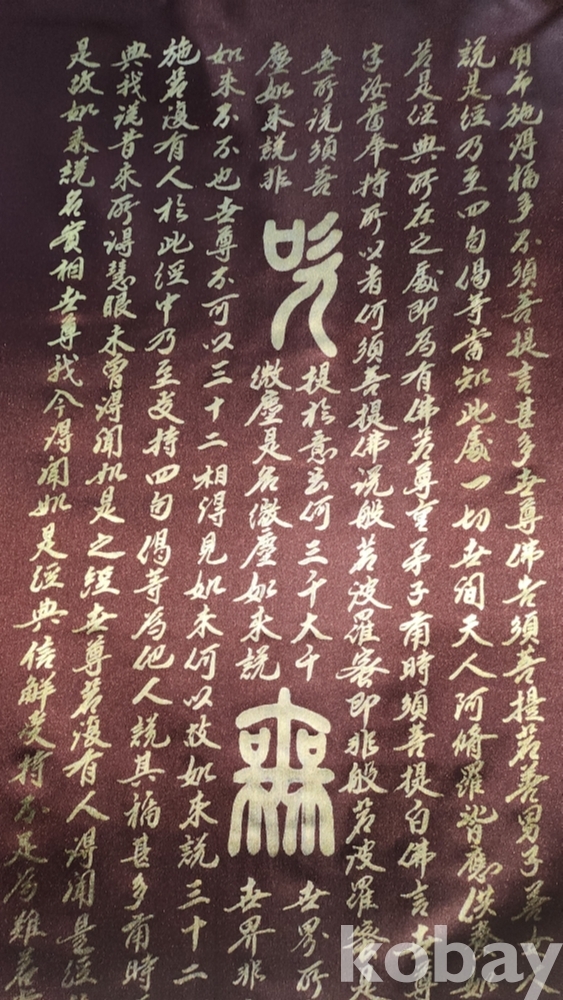 用布施得福多不須菩提言甚多世尊佛告須菩提若善男子善女人
說是經乃至四句偈等當知此處一切世間天人阿脩羅皆應供養如
若是經典所在之處即為有佛若尊重弟子爾時須菩提白佛言世尊
字汝當奉持所以者何須菩提佛說般若波羅蜜即非般若波羅蜜是
無所說須菩
提於意云何三千大千
世界所
塵如來說非
微塵是名微塵如來說
世界非
無
如來不不也世尊不可以三十二相得見如來何以故如來說三十二
施若復有人於此經中乃至受持四句偈等為他人說其福甚多爾時
典我從昔來所得慧眼未曾得聞如是之經世尊若復有人得聞是經
是故如來說名實相世尊我今得聞如是經典信解受持不足為難若
kobay